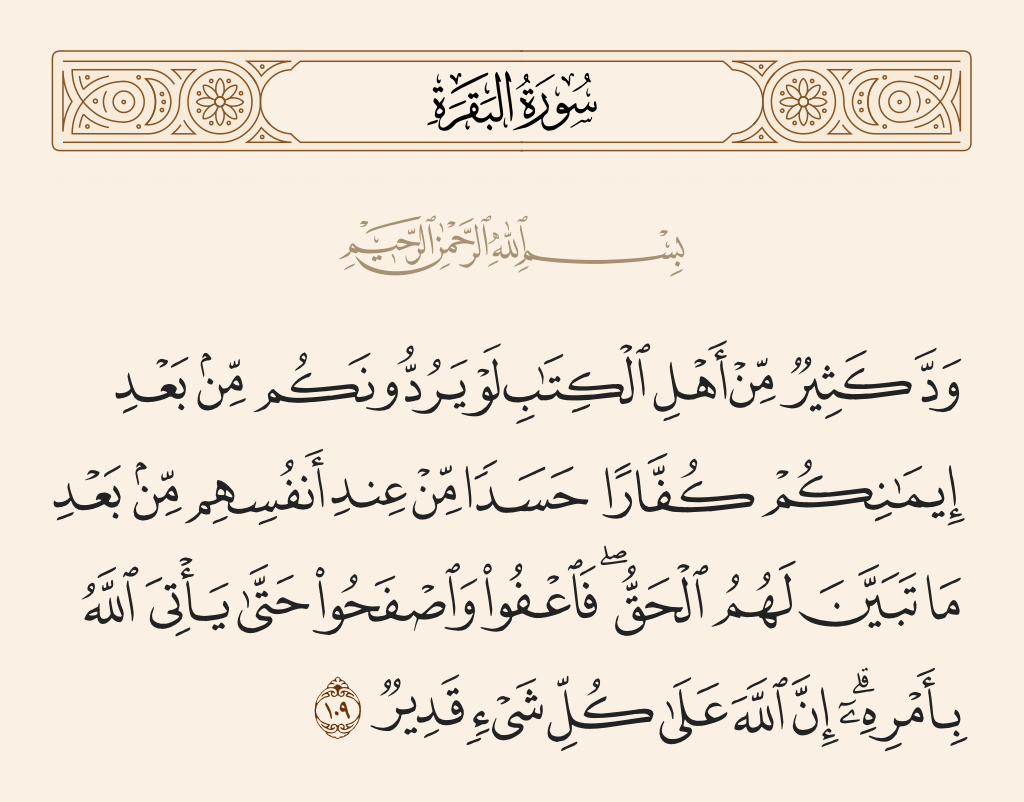 سُورَةُ البَقَرَةِ
بِسْمِ ٱللَّهِ ٱلرَّحْمَٰنِ ٱلرَّحِيمِ
وَدَّ كَثِيرٌ مِّنْ أَهْلِ ٱلْكِتَٰبِ لَوْ يَرُدُّونَكُم مِّنۢ بَعْدِ
إِيمَٰنِكُمْ كُفَّارًا حَسَدًا مِّنْ عِندِ أَنفُسِهِم مِّنۢ بَعْدِ
مَا تَبَيَّنَ لَهُمُ ٱلْحَقُّ ۖ فَٱعْفُوا۟ وَٱصْفَحُوا۟ حَتَّىٰ يَأْتِىَ ٱللَّهُ
بِأَمْرِهِۦٓ ۗ إِنَّ ٱللَّهَ عَلَىٰ كُلِّ شَىْءٍ قَدِيرٌ ١٠٩